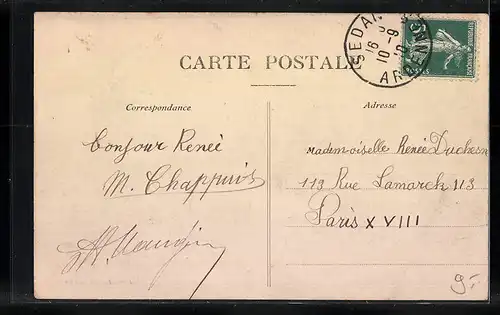 CARTE POSTALE
SEDAN
ARDENNES
Correspondance
Adresse
Bonjour Renée
M. Chappuis
Mademoiselle Renée Duchesn
119 Rue Lamarck 113
Paris XVIII
9.-